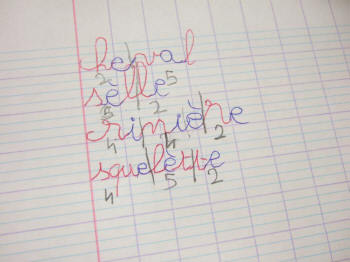 cheval
2 5
selle
5 2
crinière
4 4 2
squelètte
4 5 2